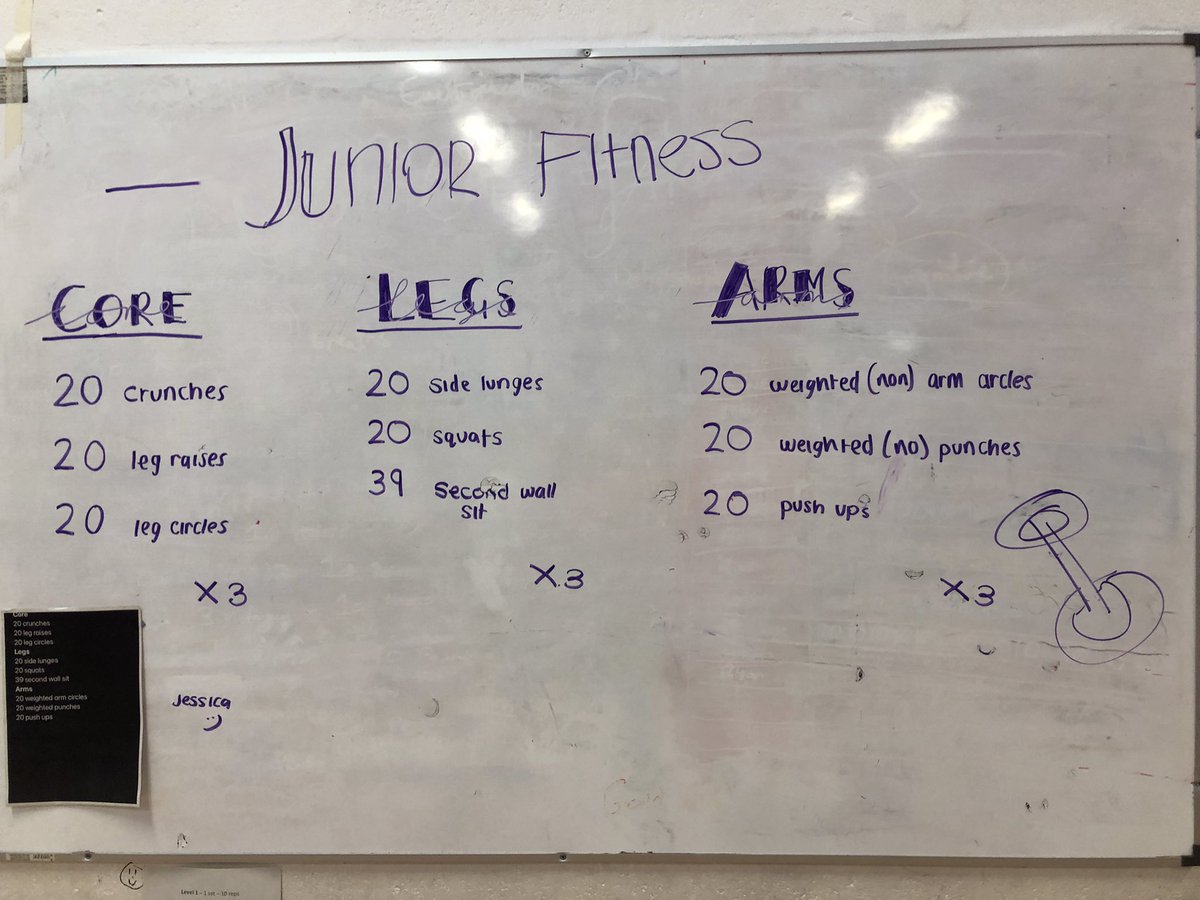 JUNIOR FITNESS
CORE
20 crunches
20 leg raises
20 leg circles
X3
LEGS
20 side lunges
20 squats
39 second wall
sit
X3
ARMS
20 weighted (non) arm circles
20 weighted (no) punches
20 push ups
X3
Core
20 crunches
20 leg raises
20 leg circles
Legs
20 side lunges
20 squats
39 second wall sit
Arms
20 weighted arm circles
20 weighted punches
20 push ups
Jessica
:)
Level 1 - 1 set - 10 reps